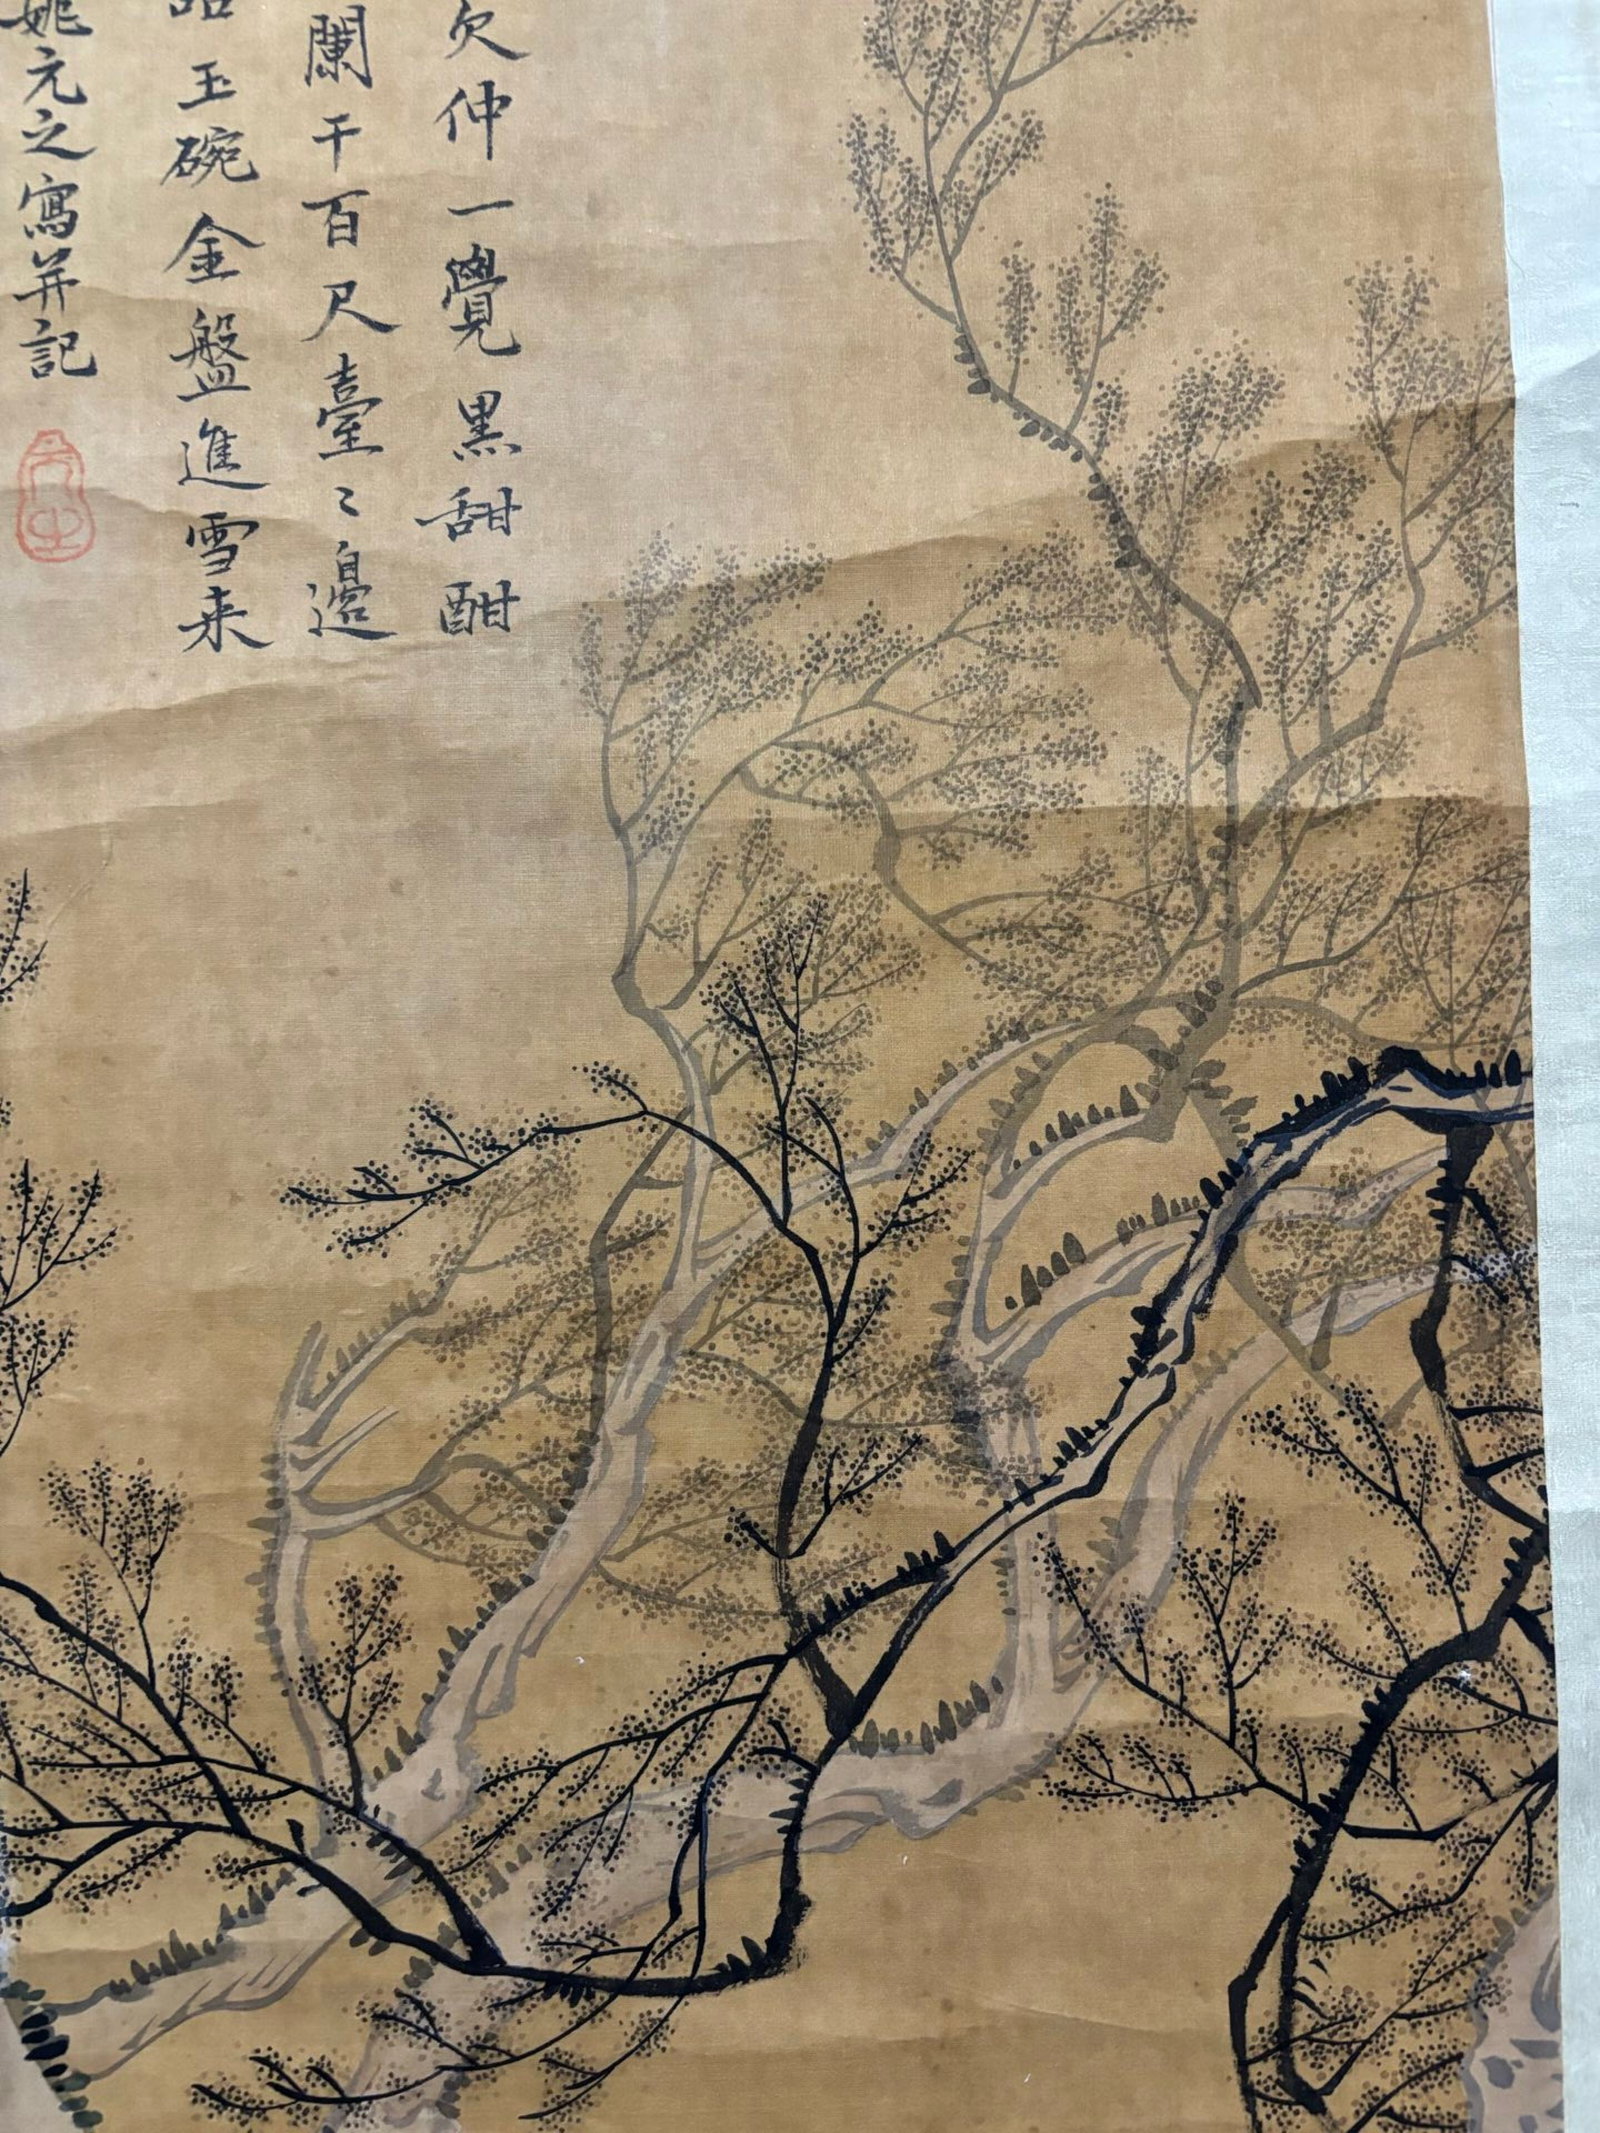 欠仲一覺黑甜酣
闌干百尺臺〻邊
玉碗金盤進雪來
姚元之寫并記